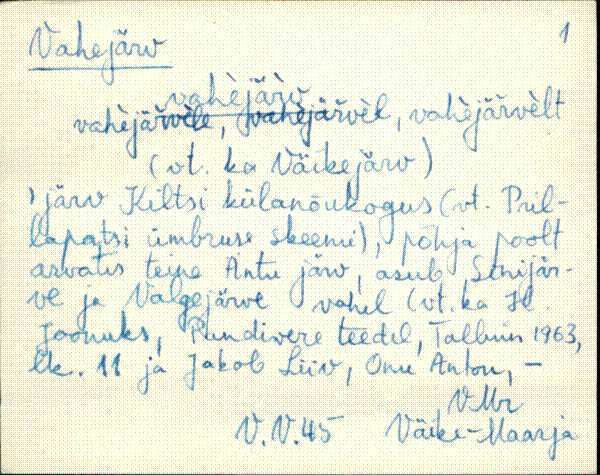 Vahejärv 1
vahèjäŕv
vahèjäŕvèle, vahèjäŕvèl, vahèjäŕvèlt
(vt. ka Väikejärv)
järv Kiltsi külanõukogus (vt. Pril-
lapatsi ümbruse skeemi), põhja poolt
arvates teine Antu järv, asub Sinijär-
ve ja Valgejärve vahel (vt. ka H.
Joonuks, Pandivere teedel, Tallinn 1963,
lk. 11 ja Jakob Liiv, Onu Anton, –
V.Mr
V.V.45 Väike-Maarja